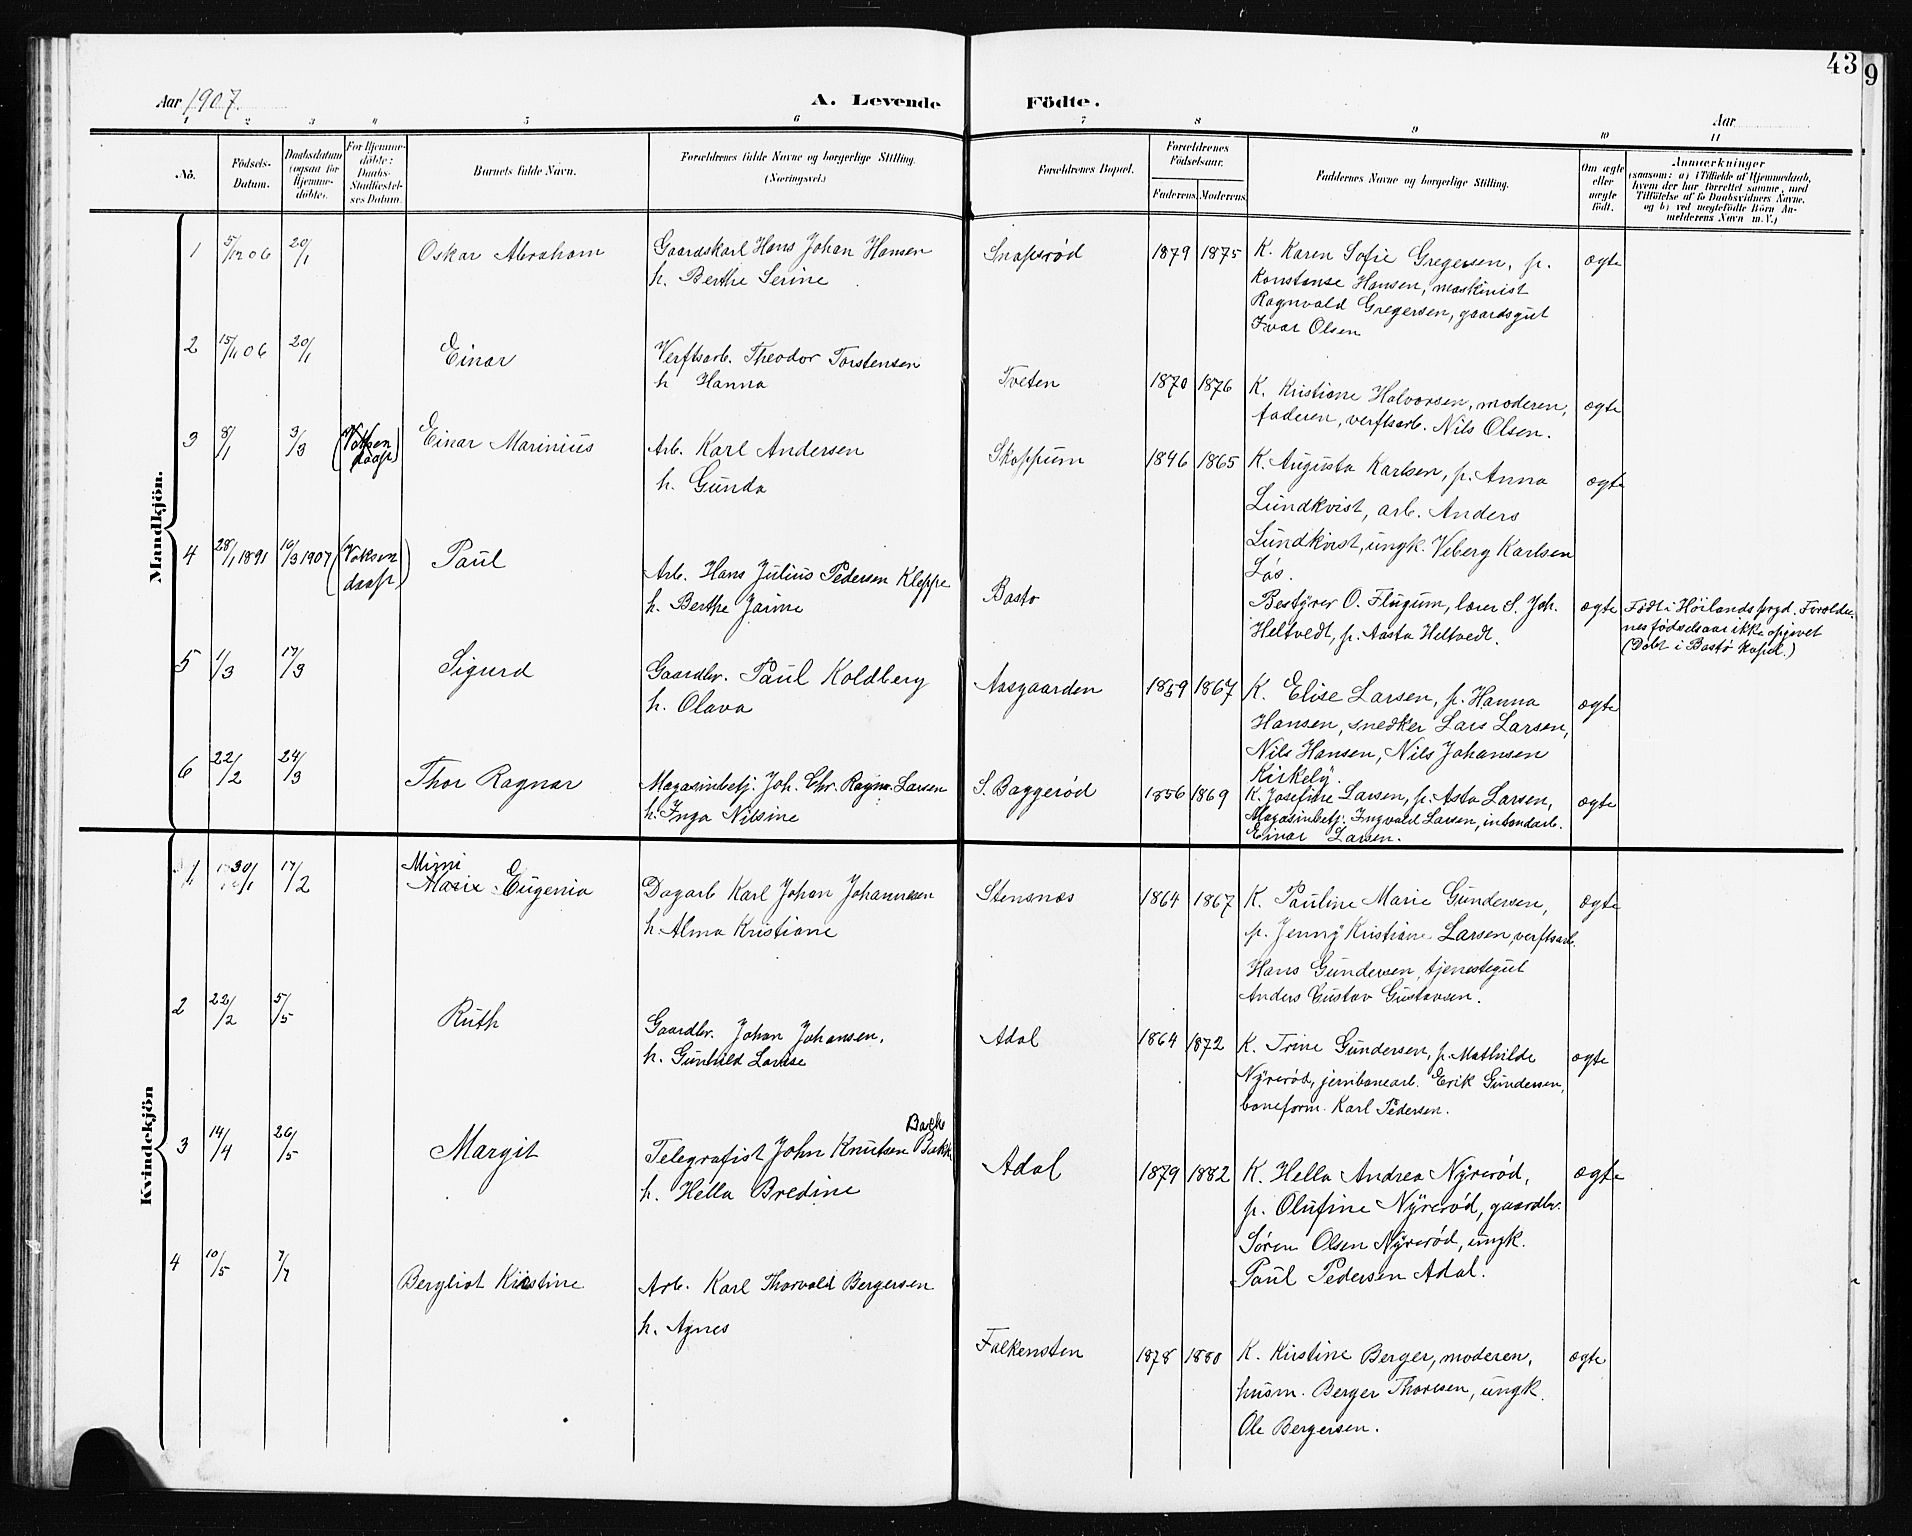 43
9
Aar 1907.
A. Levende Födte.
Aar
1 2 3 4 5 6 7 8 9 10 11
No.
Födsels-
Datum.
Daabsdatum
(ogsaa for
Hjemme-
döbte).
For Hjemme-
döbte:
Daabs-
Stadfæstel-
ses Datum.
Barnets fulde Navn.
Forældrenes fulde Navne og borgerlige Stilling.
(Næringsvei.)
Forældrenes Bopæl.
Forældrenes
Födselsaar.
Faderens Moderens
Faddernes Navne og borgerlige Stilling.
Om ægte
eller
uægte
födt.
Anmærkninger
(saasom: a) i Tilfælde af Hjemmedaab,
hvem der har forrettet samme, med
Tilföielse af to Daabsvidners Navne,
og b) ved uægtefödte Börn An-
melderens Navn m. V.)
Mandkjön.
1 5/12 06 20/1 Oskar Abraham
Gaardskarl Hans Johan Hansen
h. Berthe Serine
Snapsrød 1879 1875
K. Karen Sofie Gregersen, p.
Konstanse Hansen, maskinist
Ragnvald Gregersen, gaardsgut
Ivar Olsen
ægte
2 15/11 06 20/1 Einar
Verftsarb. Theodor Torstensen
h Hanna
Tveten 1870 1876
K. Kristiane Halvorsen, moderen,
faderen, verftsarb. Nils Olsen.
ægte
3 8/1 3/3 (Voksen
daab) Einar Marinius
Arb. Karl Andersen
h. Gunda
Skoppum 1846 1865
K. Augusta Karlsen, p. Anna
Lundkvist, arb. Anders
Lundkvist, ungk. Veberg Karlsen
Løs.
ægte
4 28/1 1891 10/3 1907 (Voksen
daab) Paul
Arb. Hans Julius Pedersen Kleppe
h. Berthe Jarine
Bastø
Bestyrer O. Flugum, lærer S. Joh.
Heltvedt, p. Aasta Heltvedt.
ægte
Født i Høilands prgd. Forældre-
nes fødselsaar ikke opgivet
(Døbt i Bastø kapel.)
5 1/3 17/3 Sigurd
Gaardbr. Paul Koldberg
h. Olava
Aasgaarden 1859 1867
K. Elise Larsen, p. Hanna
Hansen, snedker Lars Larsen,
Nils Hansen, Nils Johansen
Kirkeby.
ægte
6 22/2 24/3 Thor Ragnar
Magasinbetj. Joh. Chr. Ragnv. Larsen
h. Inga Nilsine
S. Baggerød 1856 1869
K. Josefine Larsen, p. Asta Larsen,
Magasinbetj. Ingvald Larsen, intendarb.
Einar Larsen.
ægte
Kvindekjön
1 30/1 17/2 Mimi
Marie Eugenia
Dagarb Karl Johan Johannesen
h. Alma Kristiane
Stensnæs 1864 1867
K. Pauline Marie Gundersen,
p. Jenny Kristiane Larsen, verftsarb.
Hans Gundersen, tjenestegut
Anders Gustav Gustavsen.
ægte
2 22/2 5/5 Ruth
Gaardbr. Johan Johansen,
h. Gunhild Lovise
Adal 1864 1872
K. Trine Gundersen, p. Mathilde
Nyrerød, jernbanearb. Erik Gundersen,
baneform. Karl Pedersen.
ægte
3 14/4 26/5 Margit
Bach
Telegrafist John Knutsen Bakk
h. Hella Bredine
Adal 1879 1882
K. Hella Andrea Nyrerød,
p. Olufine Nyrerød, gaardbr.
Søren Olsen Nyrerød, ungk.
Paul Pedersen Adal.
ægte
4 10/5 7/7 Bergliot Kirstine
Arb. Karl Thorvald Bergersen
h. Agnes
Falkensten 1878 1880
K. Kirstine Berger, moderen,
husm. Berger Thoresen, ungk.
Ole Bergersen.
ægte